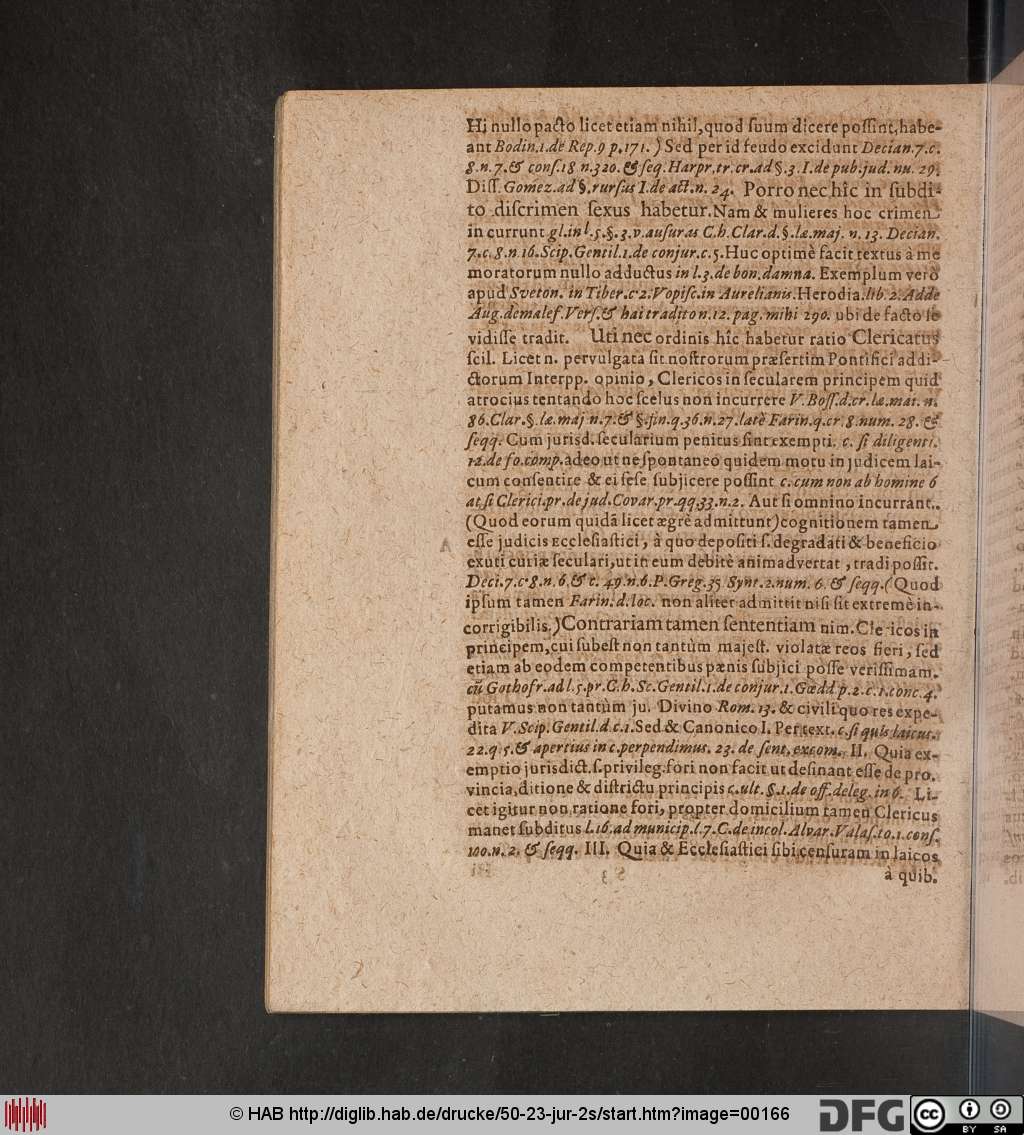 Hi nullo pacto licet etiam nihil, quod ſuum dicere poſſint, habe-
ant Bodin. 1. de Rep. 9 p. 171. ) Sed per id feudo excidunt Decian. 7. c.
8. n. 7. & conſ. 18 n. 320. & ſeq. Harpr. tr. cr. ad §. 3. I. de pub. jud. nu. 29.
Diſſ. Gomez. ad §. rurſus I. de act. n. 24. Porro nec hîc in ſubdi-
to diſcrimen ſexus habetur. Nam & mulieres hoc crimen
in currunt gl. in l. 5. §. 3. v. auſuras C. h. Clar. d. §. læ. maj. n. 13. Decian.
7. c. 8. n 16. Scip. Gentil. 1. de conjur. c. 5. Huc optimè facit textus à me
moratorum nullo adductus in l. 3. de bon. damna. Exemplum verò
apud Sveton. in Tiber. c 2. Vopiſc. in Aurelianis. Herodia. lib. 2. Adde
Aug. de malef. Verſ. & hai tradit o n. 12. pag. mihi 290. ubi de facto ſe
vidiſſe tradit. Uti nec ordinis hîc habetur ratio Clericatus
ſcil. Licet n. pervulgata ſit noſtrorum præſertim Pontifici addi-
ctorum Interpp. opinio, Clericos in ſecularem principem quid
atrocius tentando hoc ſcelus non incurrere V. Boſſ. d. cr. læ. mai. n.
86. Clar. §. læ. maj n. 7. & §. fin. q. 36. n. 27. latè Farin. q. cr. 8. num. 28. &
ſeqq. Cum jurisd. ſecularium penitus ſint exempti. c. ſi diligenti.
12. de fo. comp. adeo ut ne ſpontaneo quidem motu in judicem lai-
cum conſentire & ei ſeſe ſubjicere poſſint c. cum non ab homine 6
at ſi Clerici. pr. de jud. Covar. pr. qq. 33. n. 2. Aut ſi omnino incurrant.
(Quod eorum quidã licet ægrè admittunt) cognitionem tamen
eſſe judicis Eccleſiaſtici, à quo depoſiti ſ. degradati & beneficio
exuti curiæ ſeculari, ut in eum debitè animadvertat, tradi poſſit.
Deci. 7. c. 8. n. 6. & c. 49. n. 6. P. Greg. 35 Synt. 2. num. 6. & ſeqq. (Quod
ipſum tamen Farin. d. loc. non aliter admittit niſi ſit extremè in-
corrigibilis.) Contrariam tamen ſententiam nim. Clericos in
principem, cui ſubeſt non tantùm majeſt. violatæ reos fieri, ſed
etiam ab eodem competentibus pænis ſubjici poſſe veriſſimam.
cũ Gothofr. ad l. 5. pr. C. h. Sc. Gentil. 1. de conjur. 1. Gœdd p. 2. c. 1. conc. 4.
putamus non tantùm ju. Divino Rom. 13. & civili quo res expe-
dita V. Scip. Gentil. d. c. 1. Sed & Canonico I. Per text. c. ſi quis laicus.
22. q. 5. & apertius in c. perpendimus. 23. de ſent. excom. II. Quia ex-
emptio jurisdict. ſ. privileg. fori non facit ut deſinant eſſe de pro.
vincia, ditione & diſtrictu principis c. ult. §. 1. de off. deleg. in 6. Li-
cet igitur non ratione fori, propter domicilium tamen Clericus
manet ſubditus l. 16. ad municip. l. 7. C. de incol. Alvar. Valaſ. to. 1. conſ.
100. n. 2. & ſeqq. III. Quia & Eccleſiaſtici ſibi cenſuram in laicos
à quib.
© HAB http://diglib.hab.de/drucke/50-23-jur-2s/start.htm?image=00166
DFG
cc BY SA